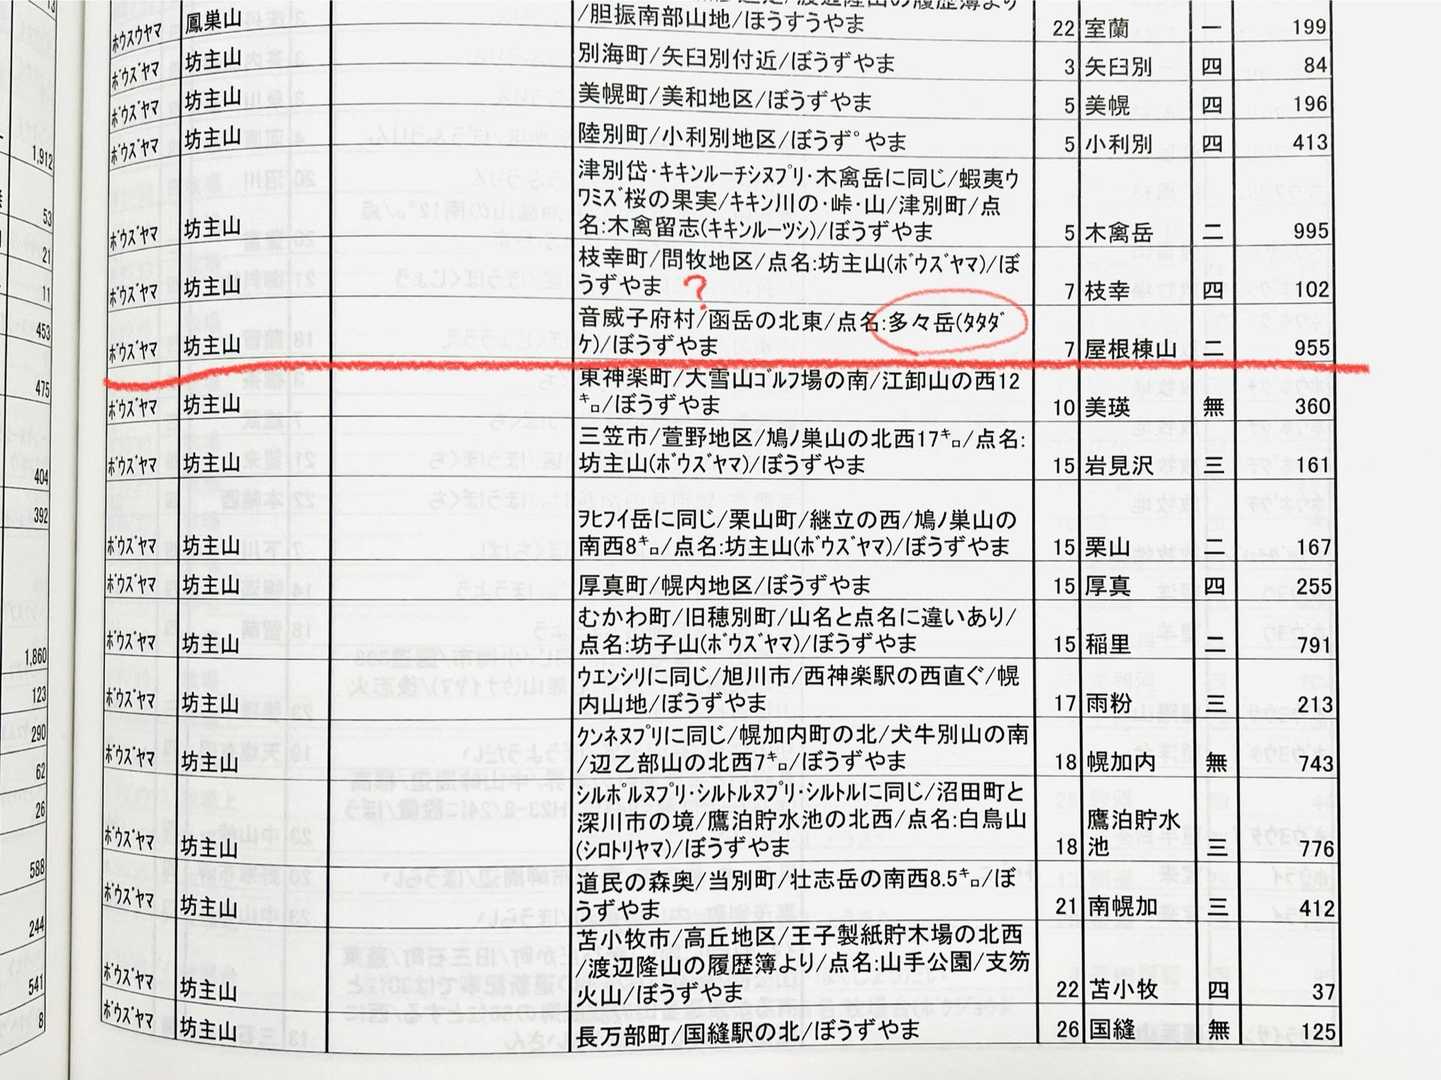 ﾎｳｽｳﾔﾏ 鳳巣山
/胆振南部山地/ぼうすうやま 22 室蘭 一 199
ﾎﾞｳｽﾞﾔﾏ 坊主山 別海町/矢臼別付近/ぼうずやま 3 矢臼別 四 84
ﾎﾞｳｽﾞﾔﾏ 坊主山 美幌町/美和地区/ぼうずやま 5 美幌 四 196
ﾎﾞｳｽﾞﾔﾏ 坊主山 陸別町/小利別地区/ぼうず゜やま 5 小利別 四 413
津別岱･ｷｷﾝﾙｰﾁｼﾇﾌﾟﾘ･木禽岳に同じ/蝦夷ｳ
ﾜﾐｽﾞ桜の果実/ｷｷﾝ川の･峠･山/津別町/点
ﾎﾞｳｽﾞﾔﾏ 坊主山 名:木禽留志(ｷｷﾝﾙｰﾂｼ)/ぼうずやま 5 木禽岳 二 995
枝幸町/問牧地区/点名:坊主山(ﾎﾞｳｽﾞﾔﾏ)/ぼ
ﾎﾞｳｽﾞﾔﾏ 坊主山 うずやま 7 枝幸 四 102
?
音威子府村/函岳の北東/点名:多々岳(ﾀﾀﾀﾞ
ﾎﾞｳｽﾞﾔﾏ 坊主山 ｹ)/ぼうずやま 7 屋根棟山 二 955
東神楽町/大雪山ｺﾞﾙﾌ場の南/江卸山の西12
ﾎﾞｳｽﾞﾔﾏ 坊主山 ｷﾛ/ぼうずやま 10 美瑛 無 360
三笠市/萱野地区/鳩ﾉ巣山の北西17ｷﾛ/点名:
ﾎﾞｳｽﾞﾔﾏ 坊主山 坊主山(ﾎﾞｳｽﾞﾔﾏ)/ぼうずやま 15 岩見沢 三 161
ｦﾋﾌｲ岳に同じ/栗山町/継立の西/鳩ﾉ巣山の
ﾎﾞｳｽﾞﾔﾏ 坊主山 南西8ｷﾛ/点名:坊主山(ﾎﾞｳｽﾞﾔﾏ)/ぼうずやま 15 栗山 二 167
ﾎﾞｳｽﾞﾔﾏ 坊主山 厚真町/幌内地区/ぼうずやま 15 厚真 四 255
むかわ町/旧穂別町/山名と点名に違いあり/
ﾎﾞｳｽﾞﾔﾏ 坊主山 点名:坊子山(ﾎﾞｳｽﾞﾔﾏ)/ぼうずやま 15 稲里 二 791
ｳｴﾝｼﾘに同じ/旭川市/西神楽駅の西直ぐ/幌
ﾎﾞｳｽﾞﾔﾏ 坊主山 内山地/ぼうずやま 17 雨粉 三 213
ｸﾝﾈﾇﾌﾟﾘに同じ/幌加内町の北/犬牛別山の南
ﾎﾞｳｽﾞﾔﾏ 坊主山 /辺乙部山の北西7ｷﾛ/ぼうずやま 18 幌加内 無 743
ｼﾙﾎﾟﾙﾇﾌﾟﾘ･ｼﾙﾄﾙﾇﾌﾟﾘ･ｼﾙﾄﾙに同じ/沼田町と
深川市の境/鷹泊貯水池の北西/点名:白鳥山 鷹泊貯水
ﾎﾞｳｽﾞﾔﾏ 坊主山 (ｼﾛﾄﾘﾔﾏ)/ぼうずやま 18 池 三 776
道民の森奥/当別町/壮志岳の南西8.5ｷﾛ/ぼ
ﾎﾞｳｽﾞﾔﾏ 坊主山 うずやま 21 南幌加 三 412
苫小牧市/高丘地区/王子製紙貯木場の北西
/渡辺隆山の履歴簿より/点名:山手公園/支笏
ﾎﾞｳｽﾞﾔﾏ 坊主山 火山/ぼうずやま 22 苫小牧 四 37
ﾎﾞｳｽﾞﾔﾏ 坊主山 長万部町/国縫駅の北/ぼうずやま 26 国縫 無 125
1,912
53
21
11
453
475
404
392
1,860
123
290
62
26
588
244
541
8